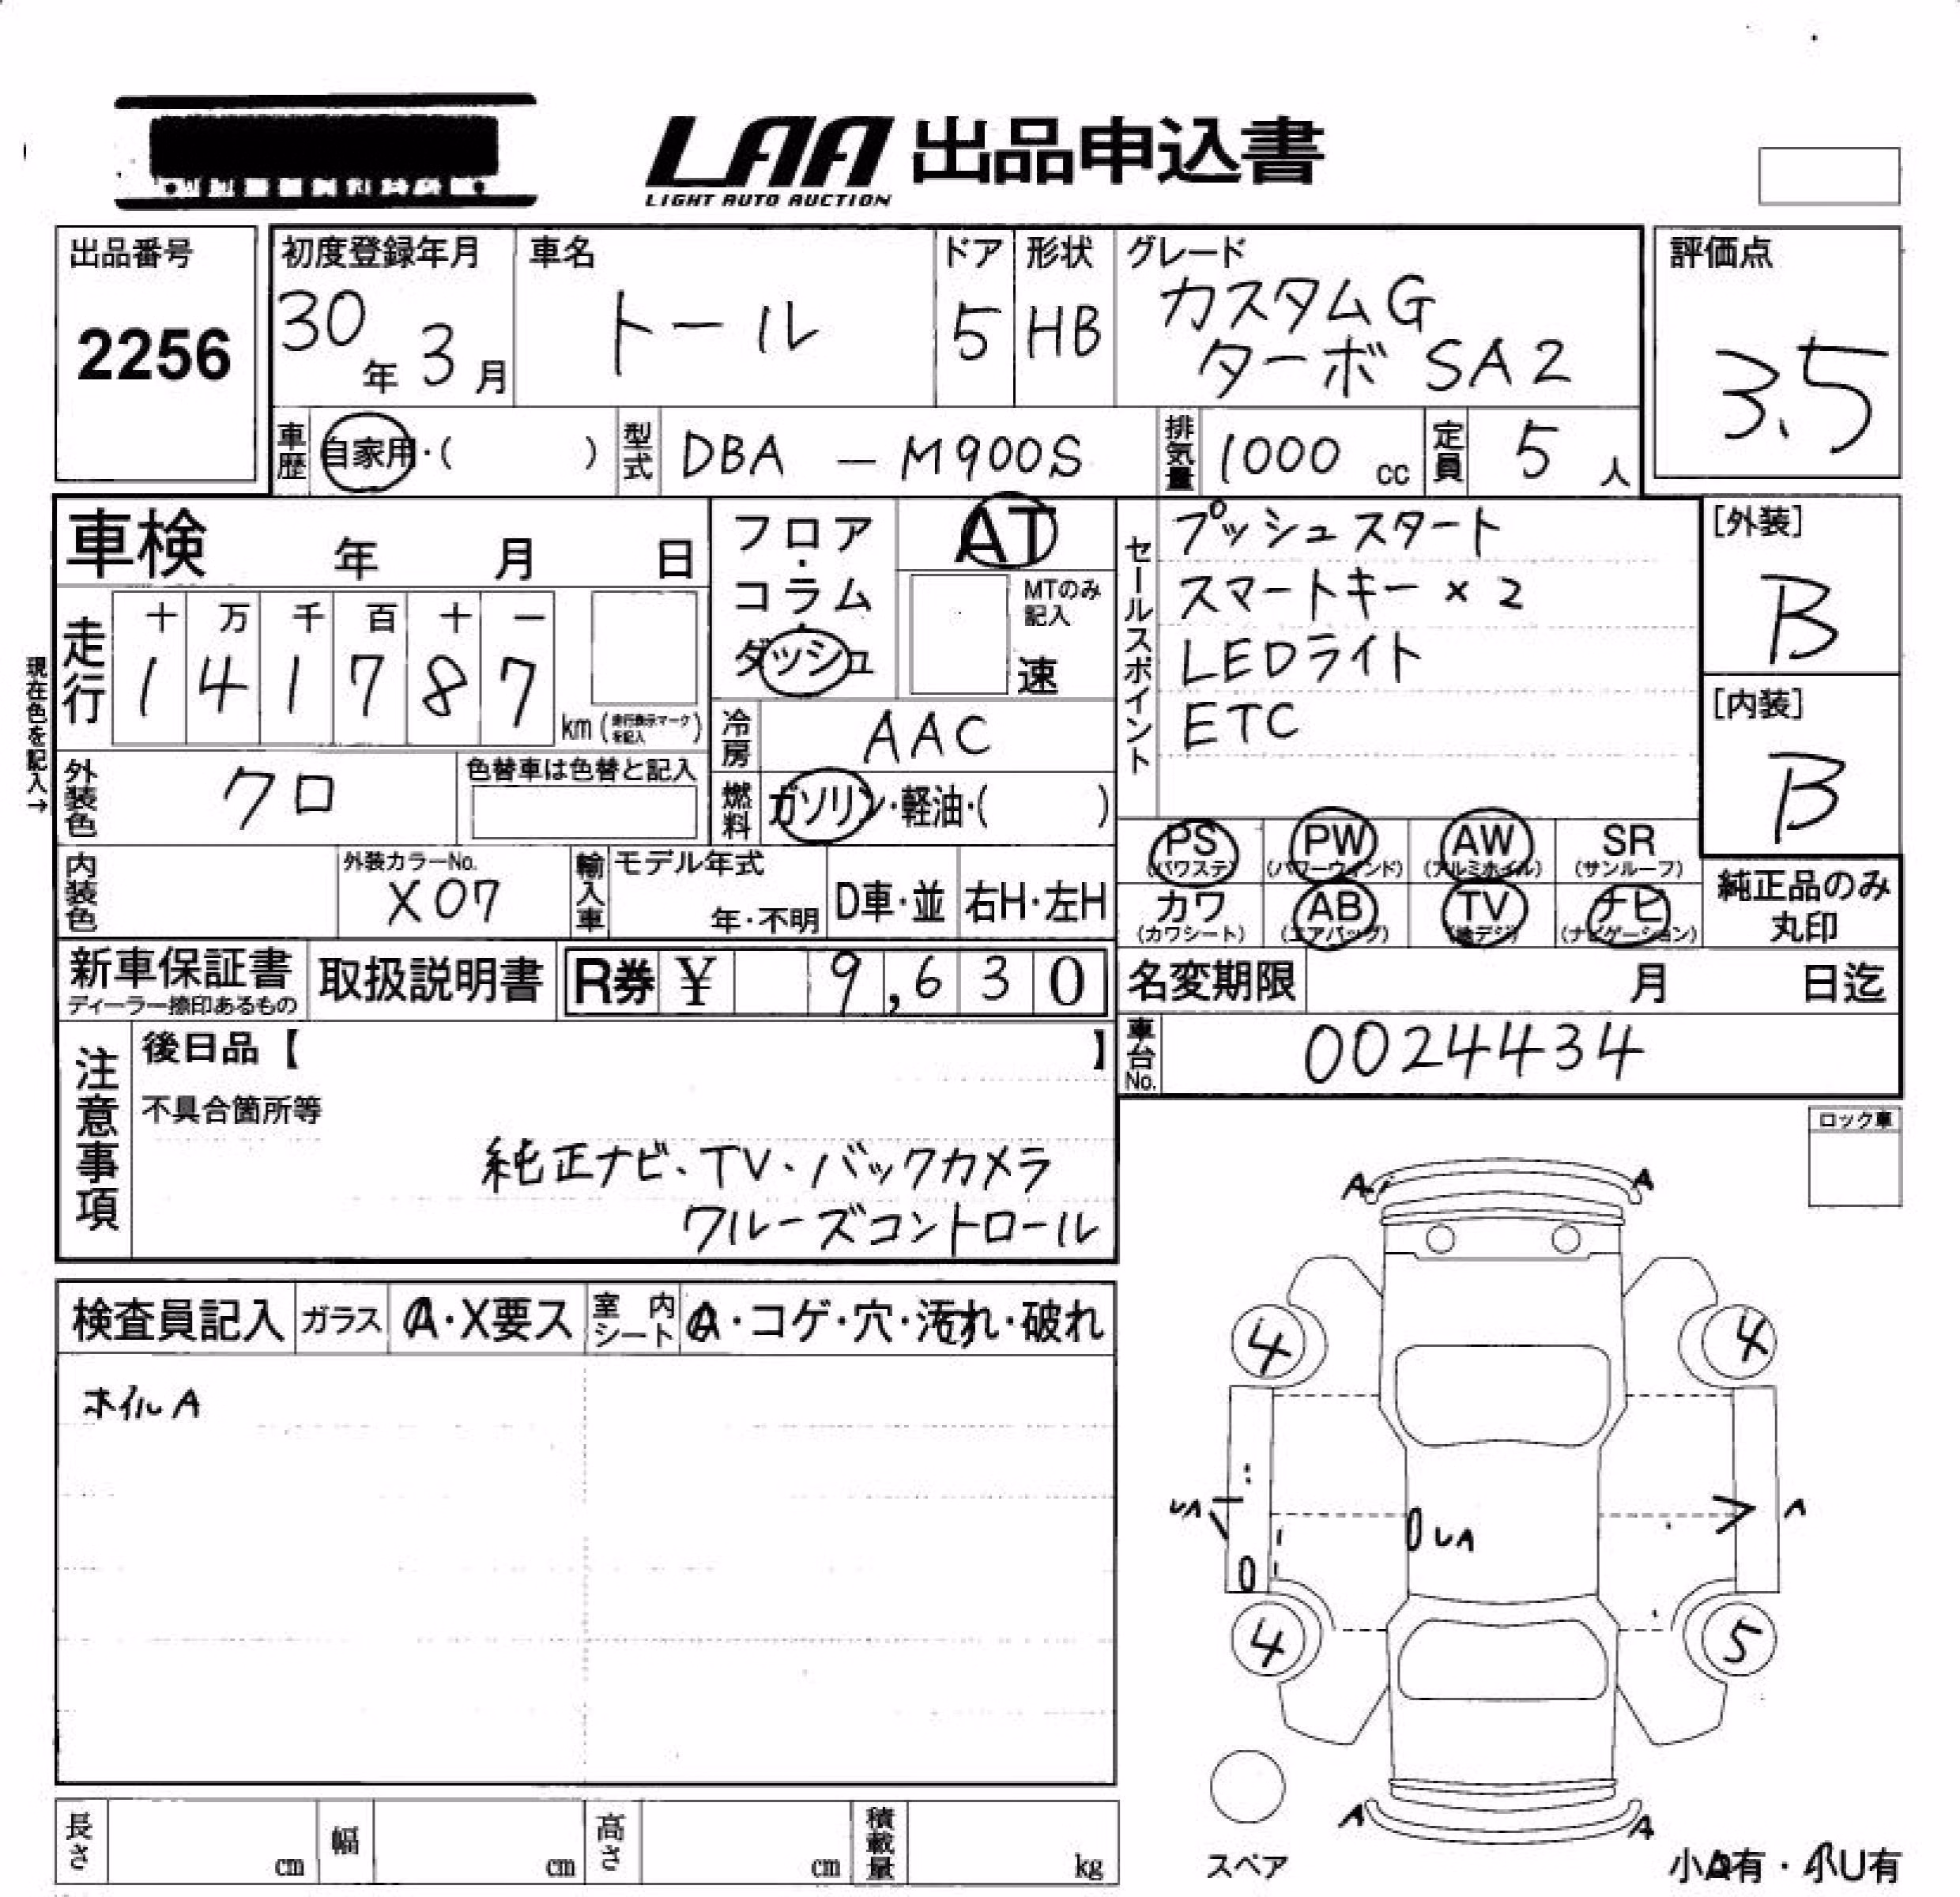 LAA 出品申込書
LIGHT AUTO AUCTION
出品番号
2256
初度登録年月
30年3月
車名
トール
ドア
5
形状
HB
グレード
カスタムG
ターボ SA2
評価点
3.5
車歴
自家用・( )
型式
DBA - M900S
排気量
1000 cc
定員
5人
車検 年 月 日
フロア・
コラム・
ダッシュ
AT
MTのみ
記入
速
セールスポイント
プッシュスタート
スマートキー×2
LEDライト
ETC
[外装]
B
[内装]
B
現在色を記入→
走行
十 万 千 百 十 一
1 4 1 7 8 7
km(走行表示マークを記入)
冷房
AAC
外装色
クロ
色替車は色替と記入
燃料
ガソリン・軽油・( )
PS
(パワステ)
PW
(パワーウィンド)
AW
(アルミホイル)
SR
(サンルーフ)
カワ
(カワシート)
AB
(エアバッグ)
TV
(地デジ)
ナビ
(ナビゲーション)
純正品のみ
丸印
内装色
外装カラーNo.
X07
輸入車
モデル年式
年・不明
D車・並
右H・左H
新車保証書
ディーラー捺印あるもの
取扱説明書
R券 ¥ 9,630
名変期限 月 日迄
車台No.
0024434
注意事項
後日品【 】
不具合箇所等
純正ナビ・TV・バックカメラ
クルーズコントロール
ロック車
検査員記入
ガラス
A・X要ス
室内シート
A・コゲ・穴・汚れ・破れ
ホイルA
A A
4 4
UA
UA
A
4 5
A A
スペア
小A有・小U有
長さ cm
幅 cm
高さ cm
積載量 kg